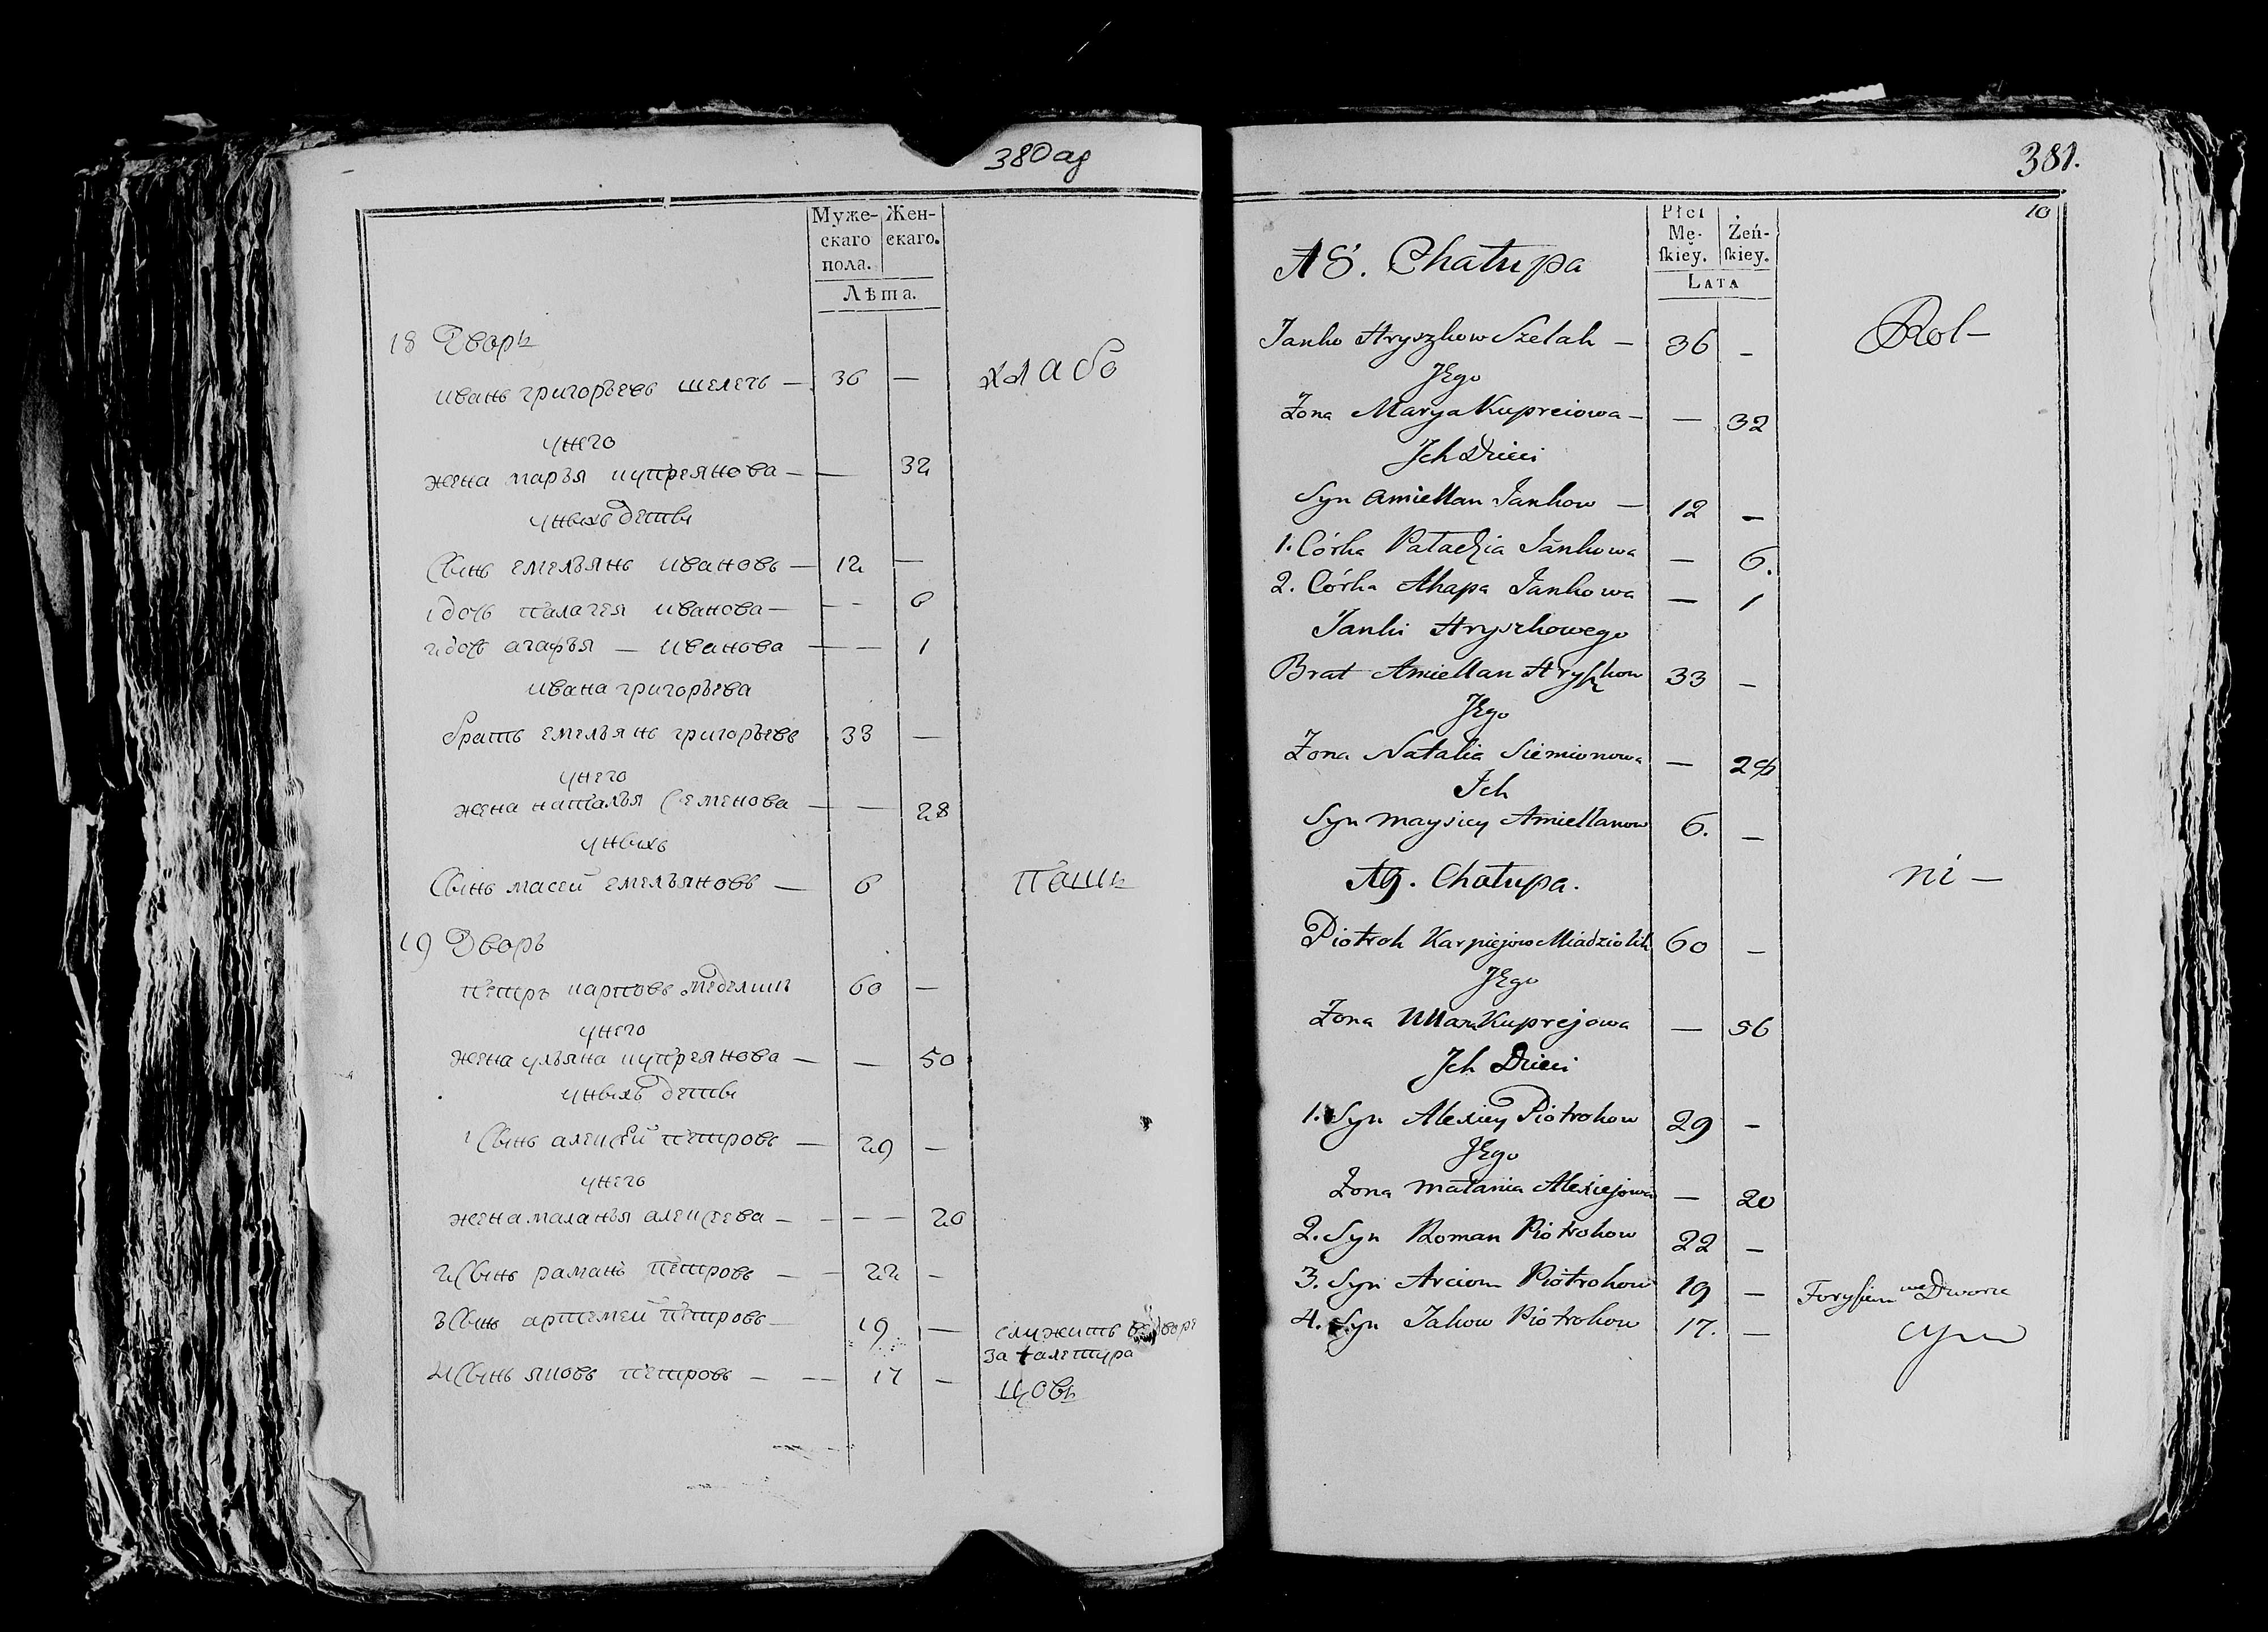 380 аδ
Муже-
скаго
пола.
Жен-
скаго.
Лѣта.
18 Дворъ
иванъ григорьевъ шелегъ — 36 —
хлабо
унего
жена марья купреянова — — 32
уныхъ дети
Сынъ емельянъ ивановъ — 12 —
1 дочь палагея иванова — — 6
2 дочь агафья — иванова — — 1
ивана григорьева
братъ емельянъ григорьевъ 33 —
унего
жена наталья Семенова — — 28
уныхъ
Сынъ масей емельяновъ — 6
паши
19 Дворъ
петръ карповъ 60 —
унего
жена ульяна купреянова — — 50
уныхъ дети
1 Сынъ алексей петровъ — 29 —
унего
жена маланья алексеева — — — 20
2 Сынъ раманъ петровъ — — 22 —
3 Сынъ артемей петровъ — 19 — служитъ
за
4 Сынъ яковъ петровъ — — 17 —
цовъ
381.
10
Płci
Mę-
ſkiey.
Żeń-
ſkiey.
LATA
18. Chałupa
Janko Hryszkow Szelah — 36 —
Rol—
JEgo
Żona Marya Kupreiowa — — 32
Jch Dzieci
Syn Amiellan Jankow — 12 —
1. Córka Pałachia Jankowa — 6.
2. Córka Ahapa Jankowa — 1
Janki Hryszkowego
Brat Amiellan Hryſzkow 33 —
JEgo
Żona Natalia Siemionowa — 28
Ich
Syn Maysiey Amiellanow 6. —
19. Chałupa.
ni —
Piotrok Karpiejow Miadziolik 60 —
JEgo
Żona Kuprejowa — 56
Jch Dzieci
1. Syn Alexiey Piotrokow 29 —
JEgo
Żona Małania Alexiejowa — 20
2. Syn Roman Piotrokow 22 —
3. Syn Arciom Piotrokow 19 — we Dworze
4. Syn Jakow Piotrokow 17. —
cy